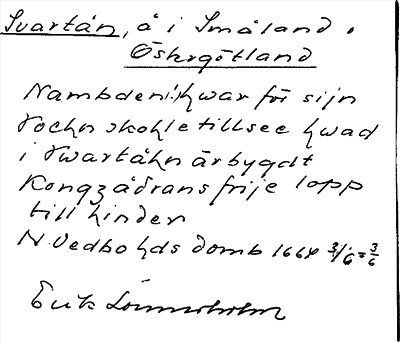 Svartån, å i Småland o
Östergötland
Nambden hwar för sijn
Sochn skohle tillsee hwad
i Swartåhn är bygdt
Kongzådrans frije lopp
till hinder
N. Vedbo hds domb 1664 3/6 = 3/6
Erik Lönnerholm